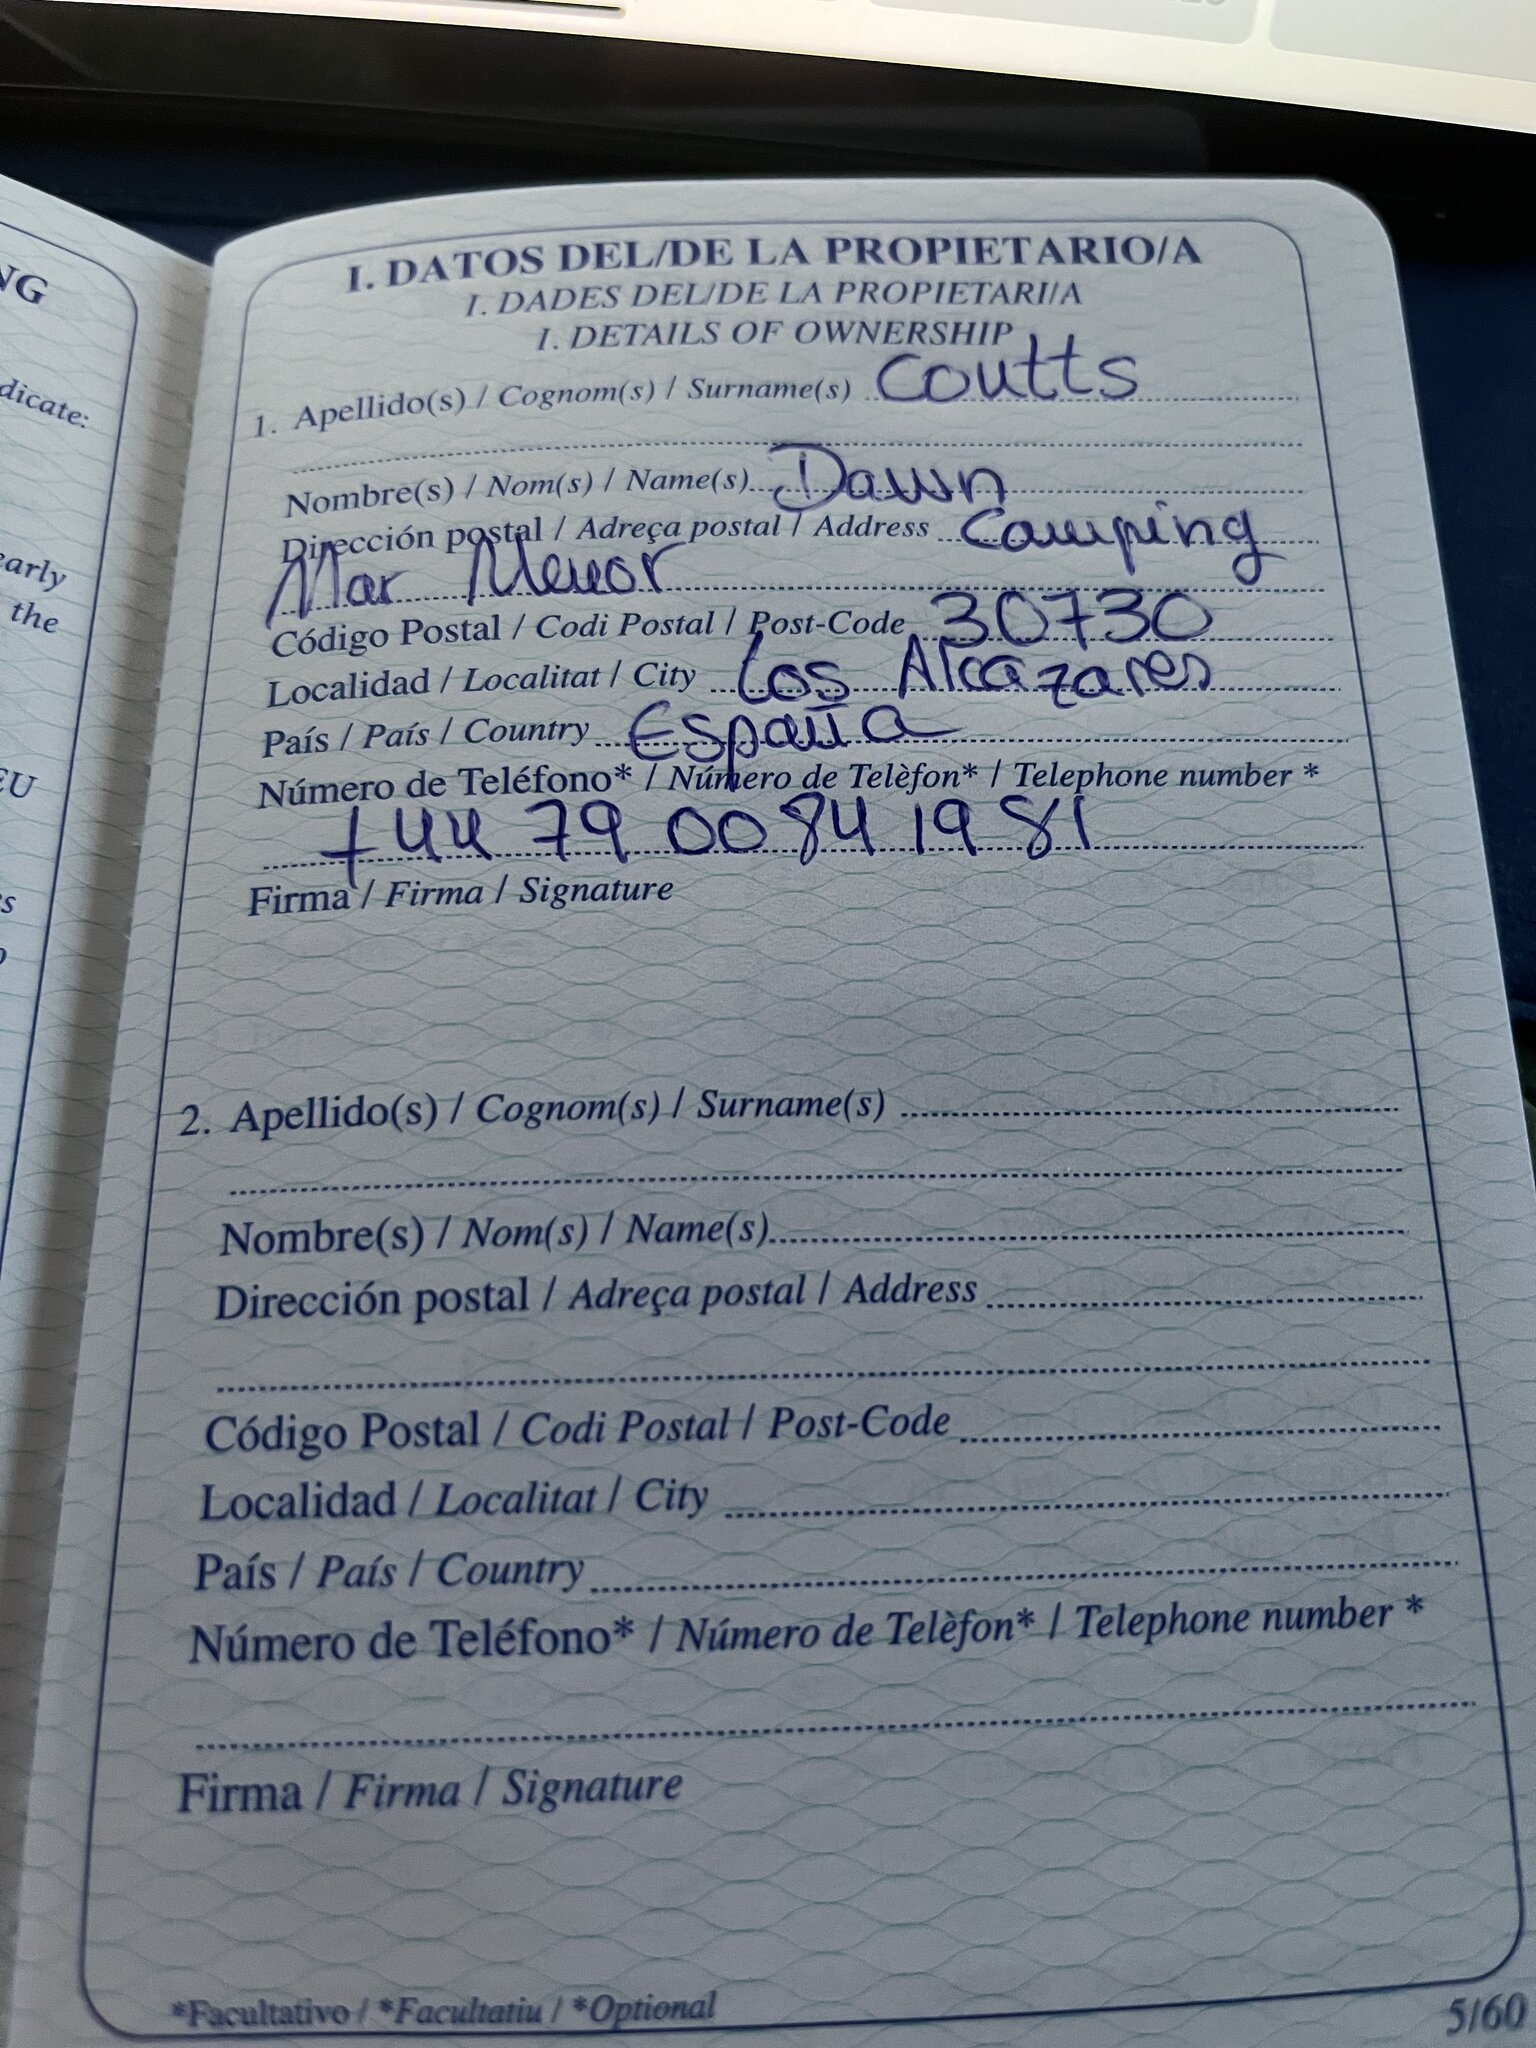 NG
dicate:
early
the
EU
I. DATOS DEL/DE LA PROPIETARIO/A
I. DADES DEL/DE LA PROPIETARI/A
I. DETAILS OF OWNERSHIP
1. Apellido(s) / Cognom(s) / Surname(s) Coutts
Nombre(s) / Nom(s) / Name(s) Dawn
Dirección postal / Adreça postal / Address Camping
Mar Menor
Código Postal / Codi Postal / Post-Code 30730
Localidad / Localitat / City Los Alcazares
País / País / Country España
Número de Teléfono* / Número de Telèfon* / Telephone number *
+44 79 00 84 19 81
Firma / Firma / Signature
2. Apellido(s) / Cognom(s) / Surname(s)
Nombre(s) / Nom(s) / Name(s)
Dirección postal / Adreça postal / Address
Código Postal / Codi Postal / Post-Code
Localidad / Localitat / City
País / País / Country
Número de Teléfono* / Número de Telèfon* / Telephone number *
Firma / Firma / Signature
*Facultativo / *Facultatiu / *Optional
5/60